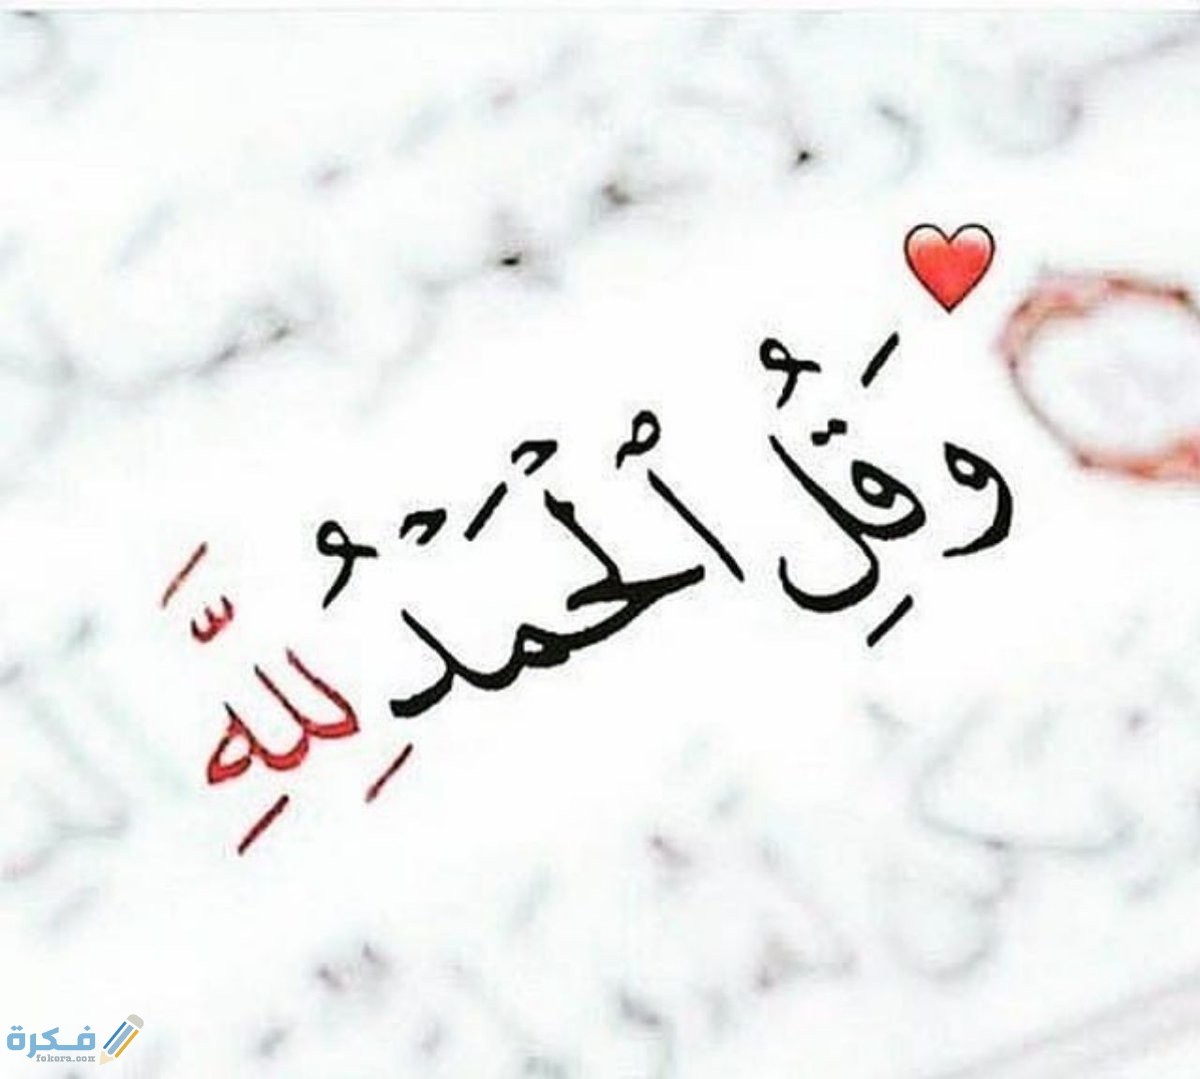 وَقُلِ ٱلْحَمْدُ لِلَّهِ
فكرة
fokera.com